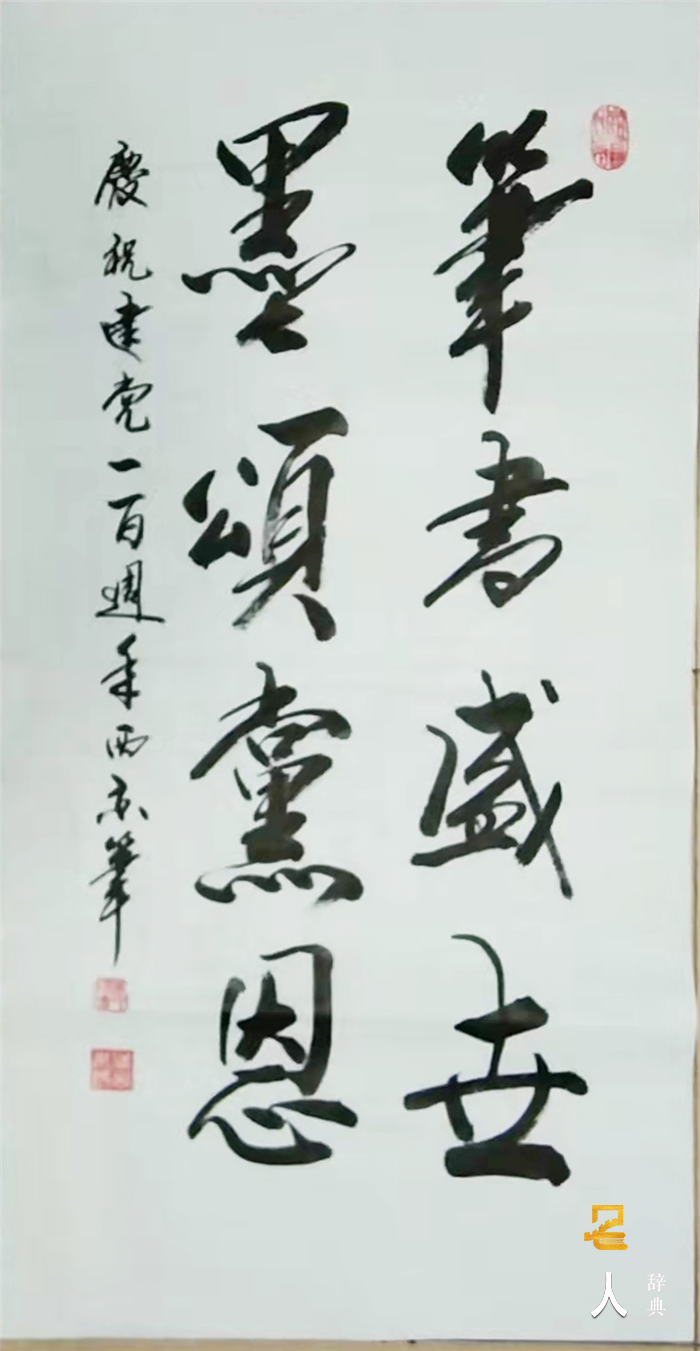 筆書盛世
墨頌黨恩
慶祝建党一百週年西亦筆
名
人
辞典